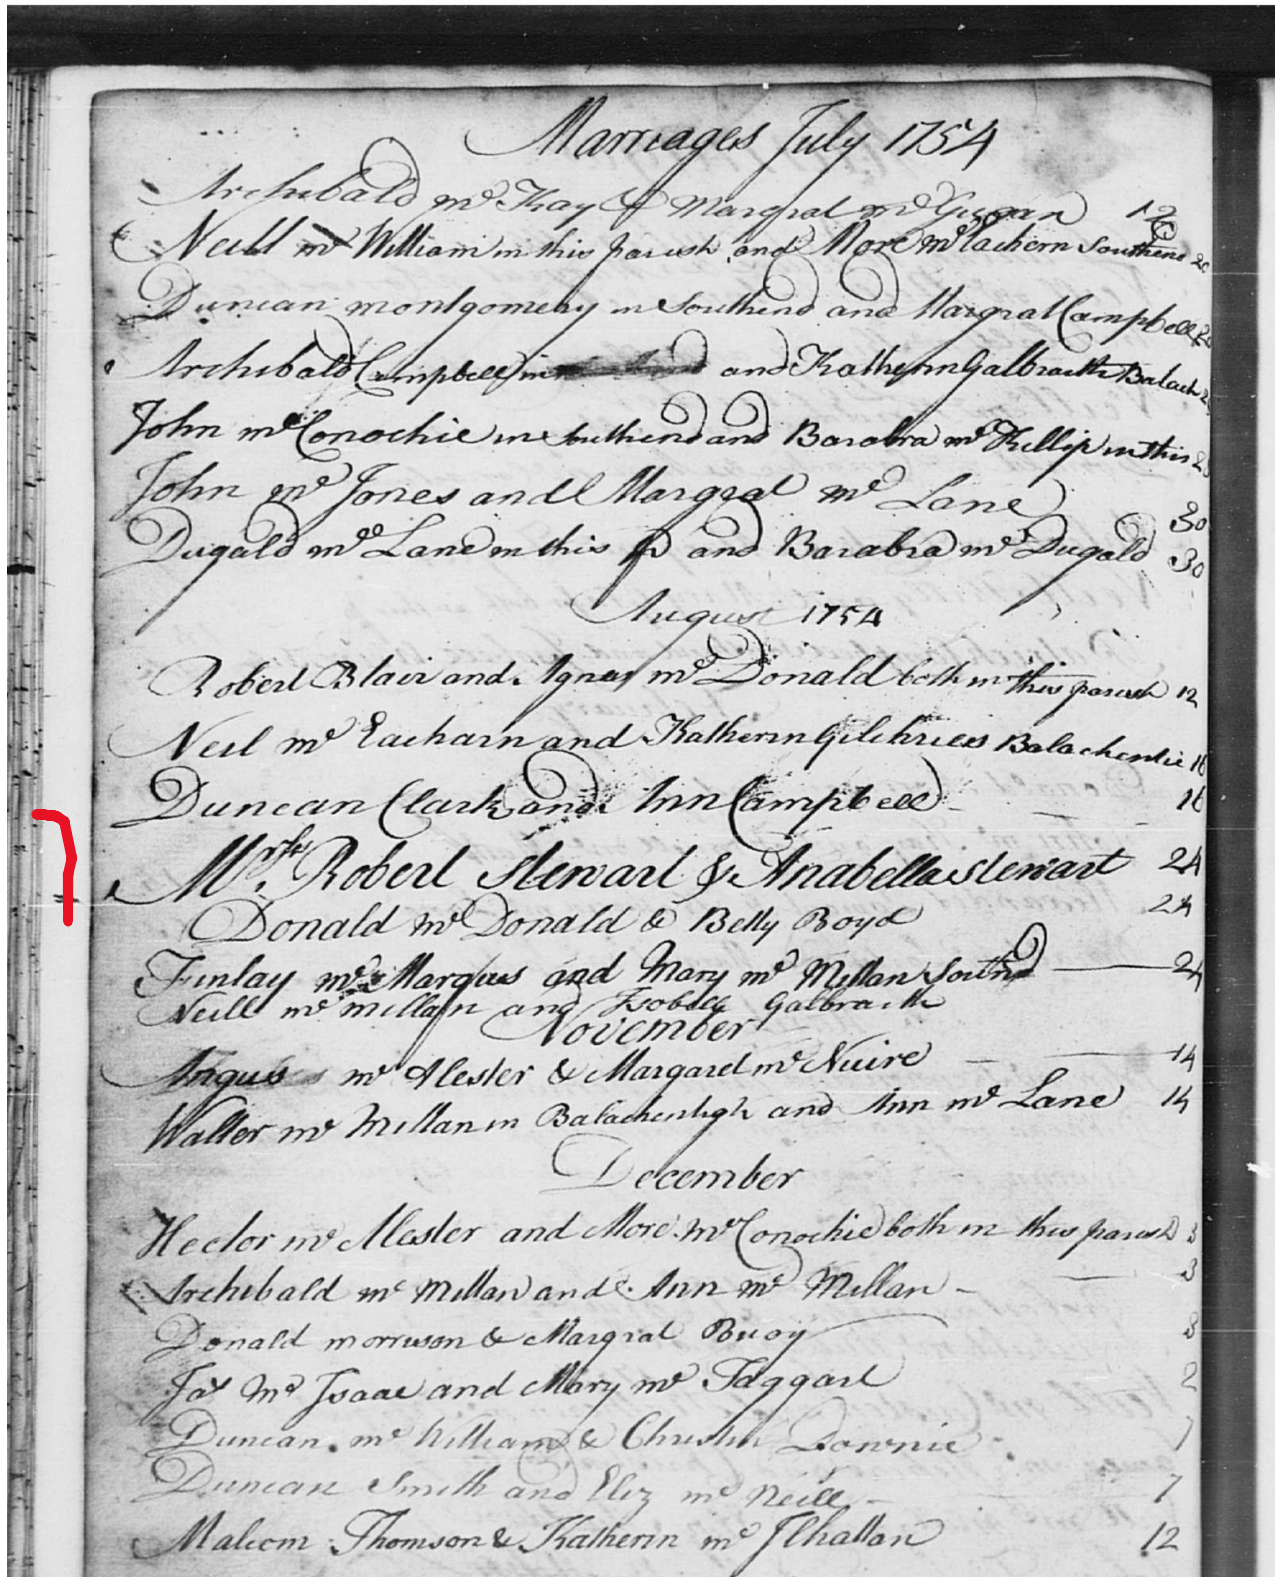 Marriages July 1754
Archibald mc Kay & Margrat mc Gugan 12
Neill mc William in this parish and More mc Eachern Southend 20
Duncan montgomery in Southend and Margrat Campbell
Archibald Campbell in and Katherin Galbraith Balach
John mc Conochie in southend and Barabra mc Killip in this
John mc Jones and Margrat mc Lane 30
Dugald mc Lane in this p and Barabra mc Dugald 30
August 1754
Robert Blair and Agnes mc Donald both in this parish 12
Neil mc Eacharn and Katherin Gilchries Balachentie 16
Duncan Clark and Ann Campbell 16
Mr Robert Stewart & Anabella Stewart 24
Donald mc Donald & Betty Boyd 24
Finlay mc Marqus and Mary mc Millan Southd 24
Neill mc millan and Isobell Galbraith
November
Angus mc Alester & Margaret mc Nuire 14
Walter mc Millan in and Ann mc Lane 14
December
Hector mc Alester and More mc Conochie both in this parish 3
Archibald mc Millan and Ann mc Millan 3
Donald morrison & Margrat Buoy 3
Jas Mc Isaac and Mary mc Taggart 2
Duncan mc William & Christin Downie 7
Duncan Smith and Eliz mc Neill 7
Malcom Thomson & Katherin mc Ilhattan 12